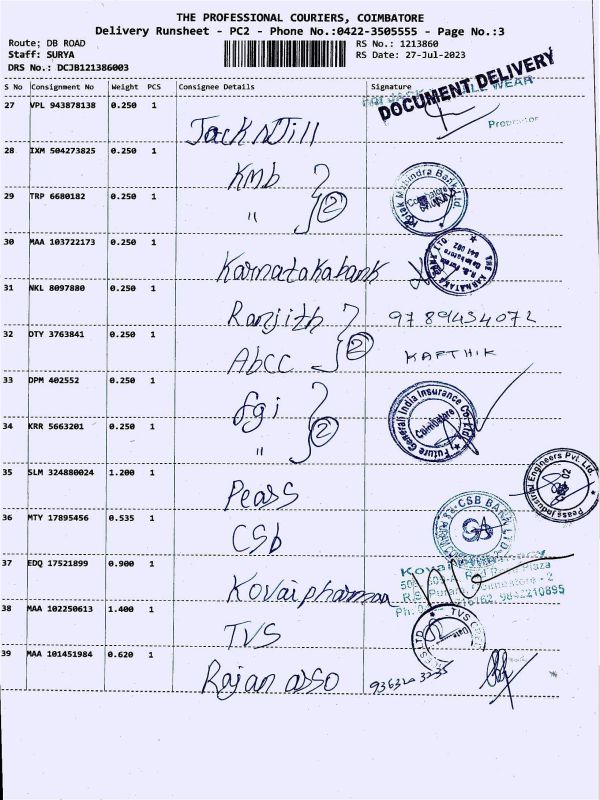 THE PROFESSIONAL COURIERS, COIMBATORE
Delivery Runsheet - PC2 - Phone No.:0422-3505555 - Page No.:3
Route; DB ROAD
RS No.: 1213860
Staff: SURYA
RS Date: 27-Jul-2023
DRS No.: DCJB121386003
S No Consignment No Weight PCS Consignee Details Signature
DOCUMENT DELIVERY
27 VPL 943878138 0.250 1 Jack N Jill
WEAR
Proprietor
28 IXM 504273825 0.250 1 KMb
Kotak Mahindra Bank Ltd.
Coimbatore
29 TRP 6680182 0.250 1 " 2
30 MAA 103722173 0.250 1 Karnatakabank
THE KARNATAKA BANK LTD.
R.S. Puram
Coimbatore
641 002
31 NKL 8097880 0.250 1 Ranjith 9789434072
32 OTY 3763841 0.250 1 Abcc 2 KARTHIK
33 DPM 402552 0.250 1 fgi
Future Generali India Insurance Co. Ltd.
Coimbatore
34 KRR 5663201 0.250 1 " 2
35 SLM 324880024 1.200 1 Peass
Peass Industrial Engineers Pvt. Ltd.
36 MTY 17895456 0.535 1 CSb
CSB BANK LTD
37 EDQ 17521899 0.900 1 Kovaipharmaa
Kovai
Plaza
R.S. Puram, Coimbatore - 2
9842210895
38 MAA 102250613 1.400 1 TVS
TVS
39 MAA 101451984 0.620 1 Rajan asso